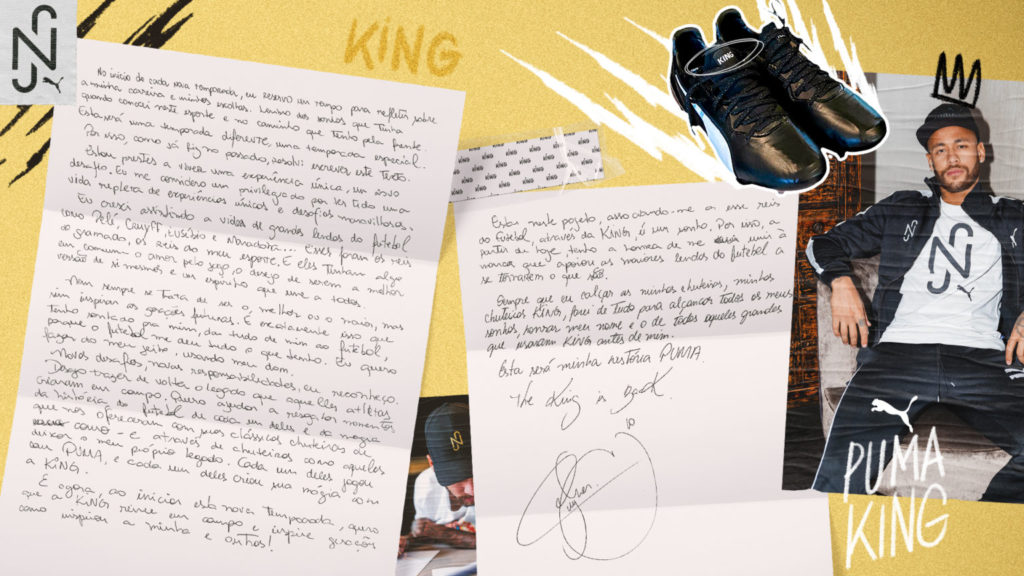 KING
No início de cada nova temporada, eu reservo um tempo para refletir sobre
a minha carreira e minhas escolhas. Lembro dos sonhos que tinha
quando comecei neste esporte e no caminho que tenho pela frente.
Esta será uma temporada diferente, uma temporada especial.
Por isso, como já fiz no passado, resolvi escrever este texto.
Estou prestes a viver uma experiência única, um novo
desafio. Eu me considero um privilegiado por ter tido uma
vida repleta de experiências únicas e desafios maravilhosos.
Eu cresci assistindo a vídeos de grandes lendas do futebol
como Pelé, Cruyff, Eusébio e Maradona... Esses foram os reis
do gramado, os reis do meu esporte. E eles tinham algo
em comum: o amor pelo jogo, o desejo de serem a melhor
versão de si mesmos e um espírito que une a todos.
Nem sempre se trata de ser o melhor ou o maior, mas
sim inspirar as gerações futuras. E exatamente isso que
tenho sonhado pra mim, dar tudo de mim ao futebol,
porque o futebol me deu tudo o que tenho. Eu quero
fazer do meu jeito, usando meu dom.
Novos desafios, novas responsabilidades, eu reconheço.
Desejo trazer de volta o legado que aqueles atletas
criaram em campo. Quero ajudar a resgatar momentos
da história do futebol de cada um deles e da magia
que nos ofereceram com suas clássicas chuteiras de
couro - e através de chuteiras como aquelas
deixar o meu próprio legado. Cada um deles jogou
com PUMA, e cada um deles criou sua magia com
a KING.
E agora, ao iniciar esta nova temporada, quero
que a KING reine em campo e inspire gerações
como inspirou a minha e outras!
Estar neste projeto, associando-me a esses reis
do futebol, através da KING, é um sonho. Por isso, a
partir de hoje, tenho a honra de me unir à
marca que apoiou as maiores lendas do futebol a
se tornarem o que são.
Sempre que eu calçar as minhas chuteiras, minhas
chuteiras KING, farei de tudo para alcançar todos os meus
sonhos, honrar meu nome e o de todos aqueles grandes
que usaram KING antes de mim.
Esta será minha história PUMA.
The King is Back.
10
KING
PUMA
KING